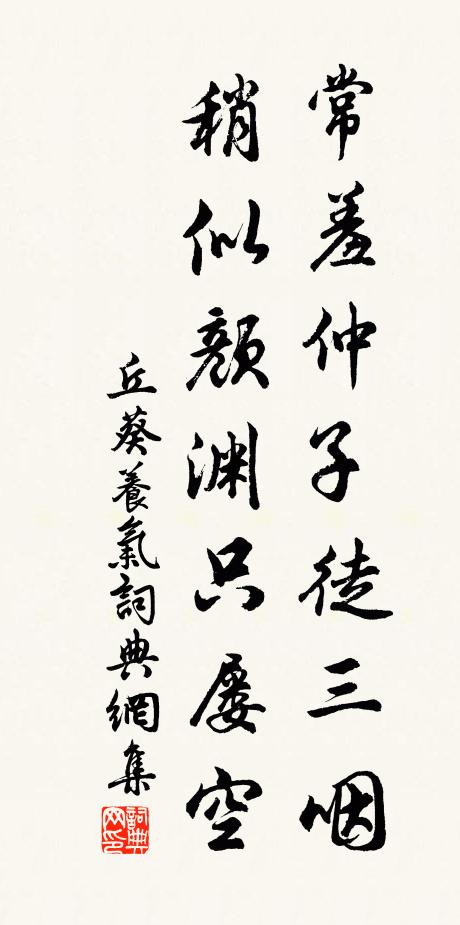 常羞仲子徒三咽
稍似顏渊只屡空
丘葵養氣詞典網集
詞典网印